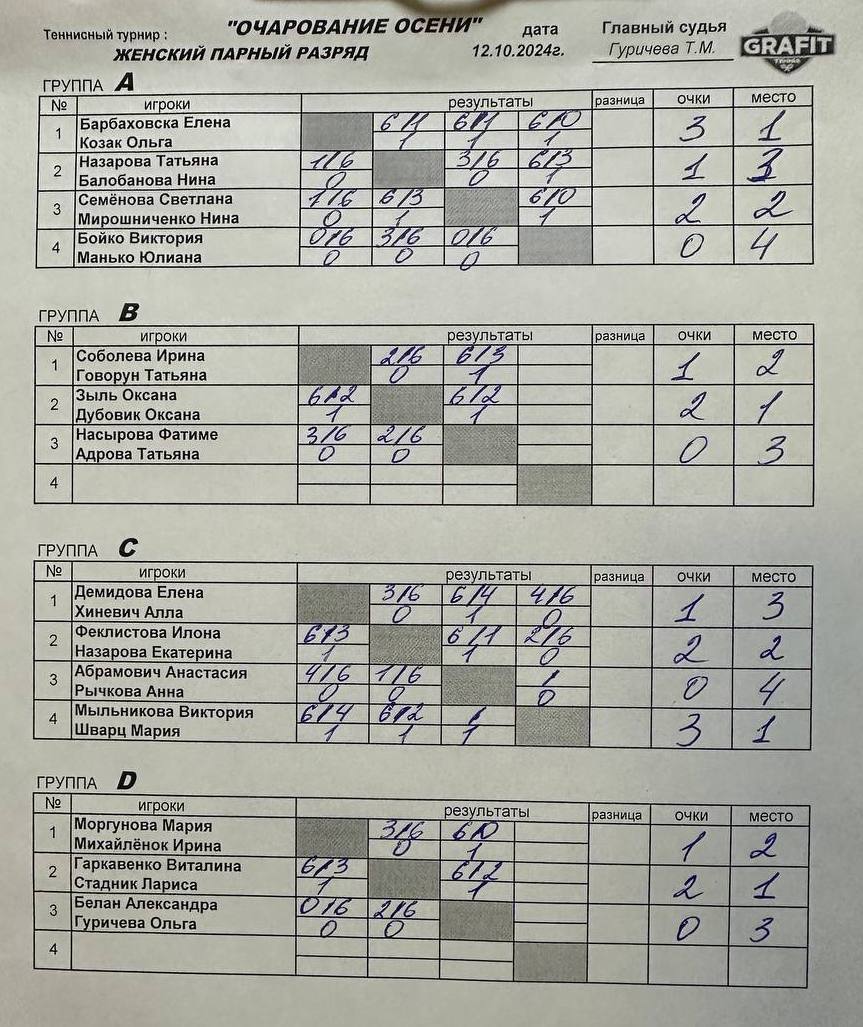 Теннисный турнир : "ОЧАРОВАНИЕ ОСЕНИ" дата Главный судья
ЖЕНСКИЙ ПАРНЫЙ РАЗРЯД 12.10.2024г. Гуричева Т.М. GRAFIT
ГРУППА A
№ игроки результаты разница очки место
1 Барбаховска Елена 6/1 6/1 6/0 3 1
Козак Ольга 1 1 1
2 Назарова Татьяна 1/6 3/6 6/3 1 3
Балобанова Нина 0 0 1
3 Семёнова Светлана 1/6 6/3 6/0 2 2
Мирошниченко Нина 0 1 1
4 Бойко Виктория 0/6 3/6 0/6 0 4
Манько Юлиана 0 0 0
ГРУППА B
№ игроки результаты разница очки место
1 Соболева Ирина 2/6 6/3 1 2
Говорун Татьяна 0 1
2 Зыль Оксана 6/2 6/2 2 1
Дубовик Оксана 1 1
3 Насырова Фатиме 3/6 2/6 0 3
Адрова Татьяна 0 0
4
ГРУППА C
№ игроки результаты разница очки место
1 Демидова Елена 3/6 6/4 4/6 1 3
Хиневич Алла 0 1 0
2 Феклистова Илона 6/3 6/1 2/6 2 2
Назарова Екатерина 1 1 0
3 Абрамович Анастасия 4/6 1/6 / 0 4
Рычкова Анна 0 0 0
4 Мыльникова Виктория 6/4 6/2 / 3 1
Шварц Мария 1 1 1
ГРУППА D
№ игроки результаты разница очки место
1 Моргунова Мария 3/6 6/0 1 2
Михайлёнок Ирина 0 1
2 Гаркавенко Виталина 6/3 6/2 2 1
Стадник Лариса 1 1
3 Белан Александра 0/6 2/6 0 3
Гуричева Ольга 0 0
4